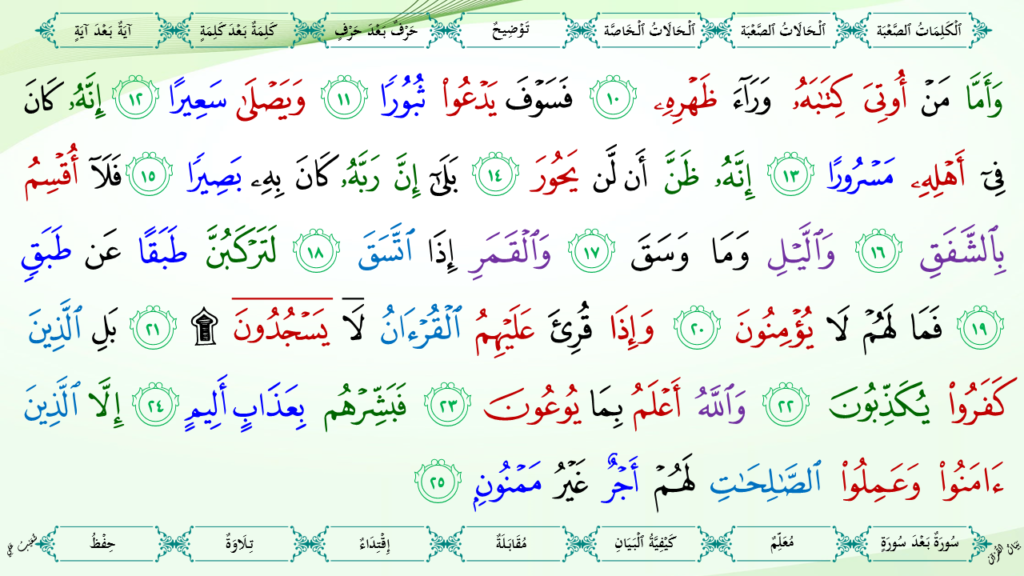 ٱلْكَلِمَاتُ ٱلصَّعْبَة ٱلْحَالَاتُ ٱلصَّعْبَة ٱلْحَالَاتُ ٱلْخَاصَّة تَوْضِيحٌ حَرْفٌ بَعْدَ حَرْفٍ كَلِمَةٌ بَعْدَ كَلِمَةٍ آيَةٌ بَعْدَ آيَةٍ
وَأَمَّا مَنْ أُوتِىَ كِتَٰبَهُۥ وَرَآءَ ظَهْرِهِۦ ١٠ فَسَوْفَ يَدْعُوا۟ ثُبُورًا ١١ وَيَصْلَىٰ سَعِيرًا ١٢ إِنَّهُۥ كَانَ
فِىٓ أَهْلِهِۦ مَسْرُورًا ١٣ إِنَّهُۥ ظَنَّ أَن لَّن يَحُورَ ١٤ بَلَىٰٓ إِنَّ رَبَّهُۥ كَانَ بِهِۦ بَصِيرًا ١٥ فَلَآ أُقْسِمُ
بِٱلشَّفَقِ ١٦ وَٱلَّيْلِ وَمَا وَسَقَ ١٧ وَٱلْقَمَرِ إِذَا ٱتَّسَقَ ١٨ لَتَرْكَبُنَّ طَبَقًا عَن طَبَقٍ
١٩ فَمَا لَهُمْ لَا يُؤْمِنُونَ ٢٠ وَإِذَا قُرِئَ عَلَيْهِمُ ٱلْقُرْءَانُ لَا يَسْجُدُونَ ۩ ٢١ بَلِ ٱلَّذِينَ
كَفَرُوا۟ يُكَذِّبُونَ ٢٢ وَٱللَّهُ أَعْلَمُ بِمَا يُوعُونَ ٢٣ فَبَشِّرْهُم بِعَذَابٍ أَلِيمٍ ٢٤ إِلَّا ٱلَّذِينَ
ءَامَنُوا۟ وَعَمِلُوا۟ ٱلصَّٰلِحَٰتِ لَهُمْ أَجْرٌ غَيْرُ مَمْنُونٍۭ ٢٥
سُورَةٌ بَعْدَ سُورَةٍ مُعَلِّمٌ كَيْفِيَّةُ ٱلْبَيَانِ مُقَابَلَةٌ إِقْتِدَاءٌ تِلَاوَةٌ حِفْظٌ
بَيَانُ القُرْآن